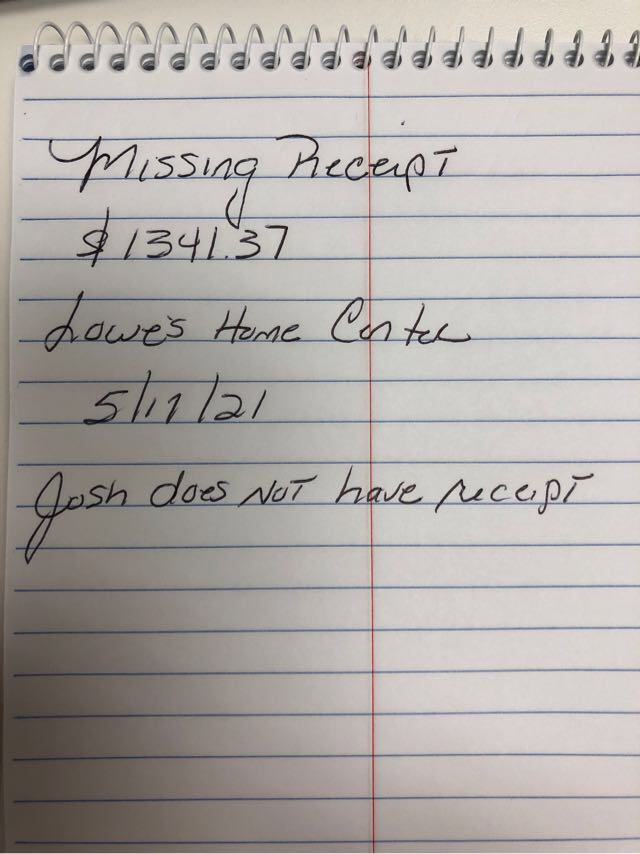 Missing Receipt
$1341.37
Lowe's Home Center
5/17/21
Josh does NOT have receipt